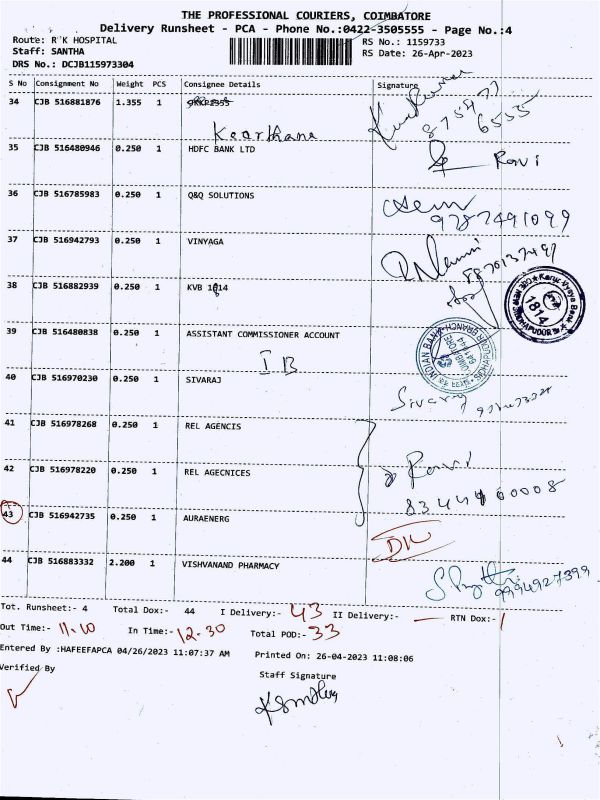 THE PROFESSIONAL COURIERS, COIMBATORE
Delivery Runsheet - PCA - Phone No.:0422-3505555 - Page No.:4
Route: R K HOSPITAL RS No.: 1159733
Staff: SANTHA RS Date: 26-Apr-2023
DRS No.: DCJB115973304
S No Consignment No Weight PCS Consignee Details Signature
34 CJB 516881876 1.355 1
Keerthana
35 CJB 516480946 0.250 1 HDFC BANK LTD Ravi
36 CJB 516785983 0.250 1 Q&Q SOLUTIONS
9787491099
37 CJB 516942793 0.250 1 VINYAGA
38 CJB 516882939 0.250 1 KVB 1814
1814
39 CJB 516480838 0.250 1 ASSISTANT COMMISSIONER ACCOUNT
IB
INDIAN BANK
40 CJB 516970230 0.250 1 SIVARAJ
Sivaraj
41 CJB 516978268 0.250 1 REL AGENCIS
42 CJB 516978220 0.250 1 REL AGECNICES Ravi
43 CJB 516942735 0.250 1 AURAENERG
44 CJB 516883332 2.200 1 VISHVANAND PHARMACY
9994927399
Tot. Runsheet:- 4 Total Dox:- 44 I Delivery:- 43 II Delivery:- — RTN Dox:- 1
Out Time:- 11.10 In Time:- 12-30 Total POD:- 33
Entered By :HAFEEFAPCA 04/26/2023 11:07:37 AM Printed On: 26-04-2023 11:08:06
Verified By Staff Signature